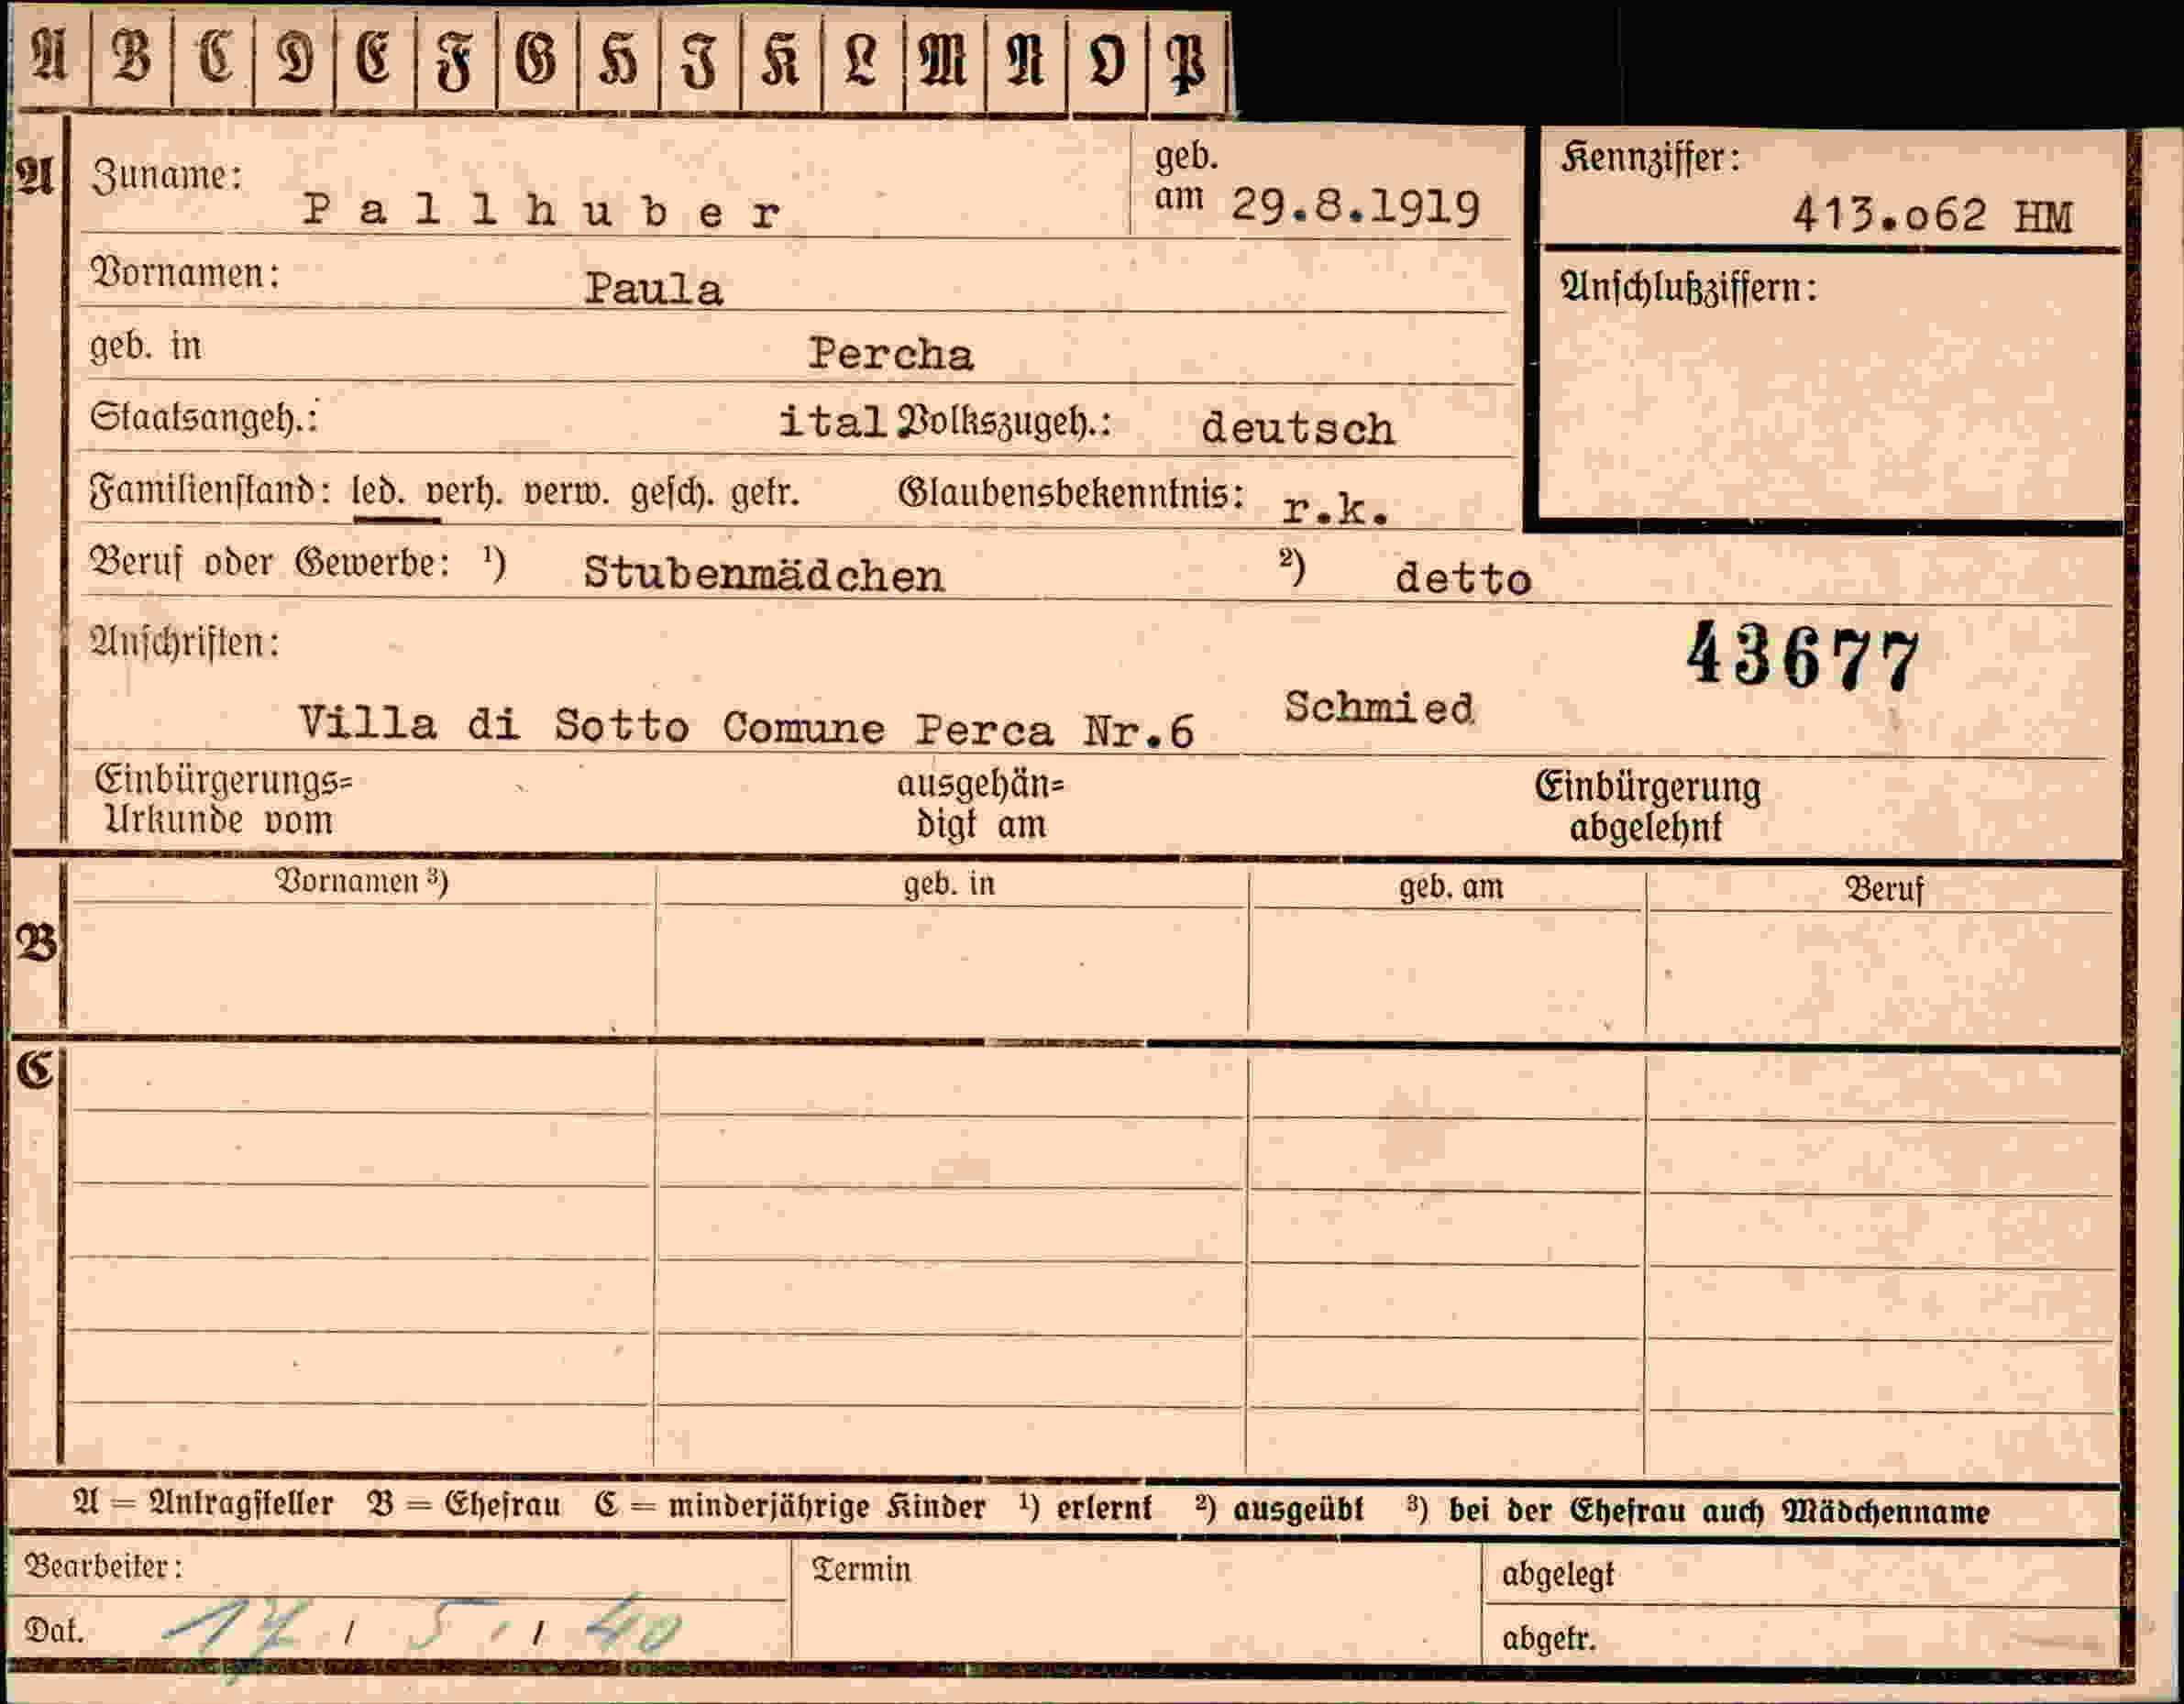 A B C D E F G H I K L M N O P
A
Zuname: Pallhuber
geb. am 29.8.1919
Kennziffer:
413.o62 HM
Vornamen: Paula
Anschlußziffern:
geb. in Percha
Staatsangeh.: ital Volkszugeh.: deutsch
Familienstand: led. verh. verw. gesch. getr. Glaubensbekenntnis: r.k.
Beruf oder Gewerbe: ¹) Stubenmädchen ²) detto
Anschriften:
43677
Villa di Sotto Comune Perca Nr.6 Schmied
Einbürgerungs= ausgehän= Einbürgerung
Urkunde vom digt am abgelehnt
B
Vornamen ³) geb. in geb. am Beruf
C
A = Antragsteller B = Ehefrau C = minderjährige Kinder ¹) erlernt ²) ausgeübt ³) bei der Ehefrau auch Mädchenname
Bearbeiter: Termin abgelegt
Dat. 17 / 5. / 40 abgetr.